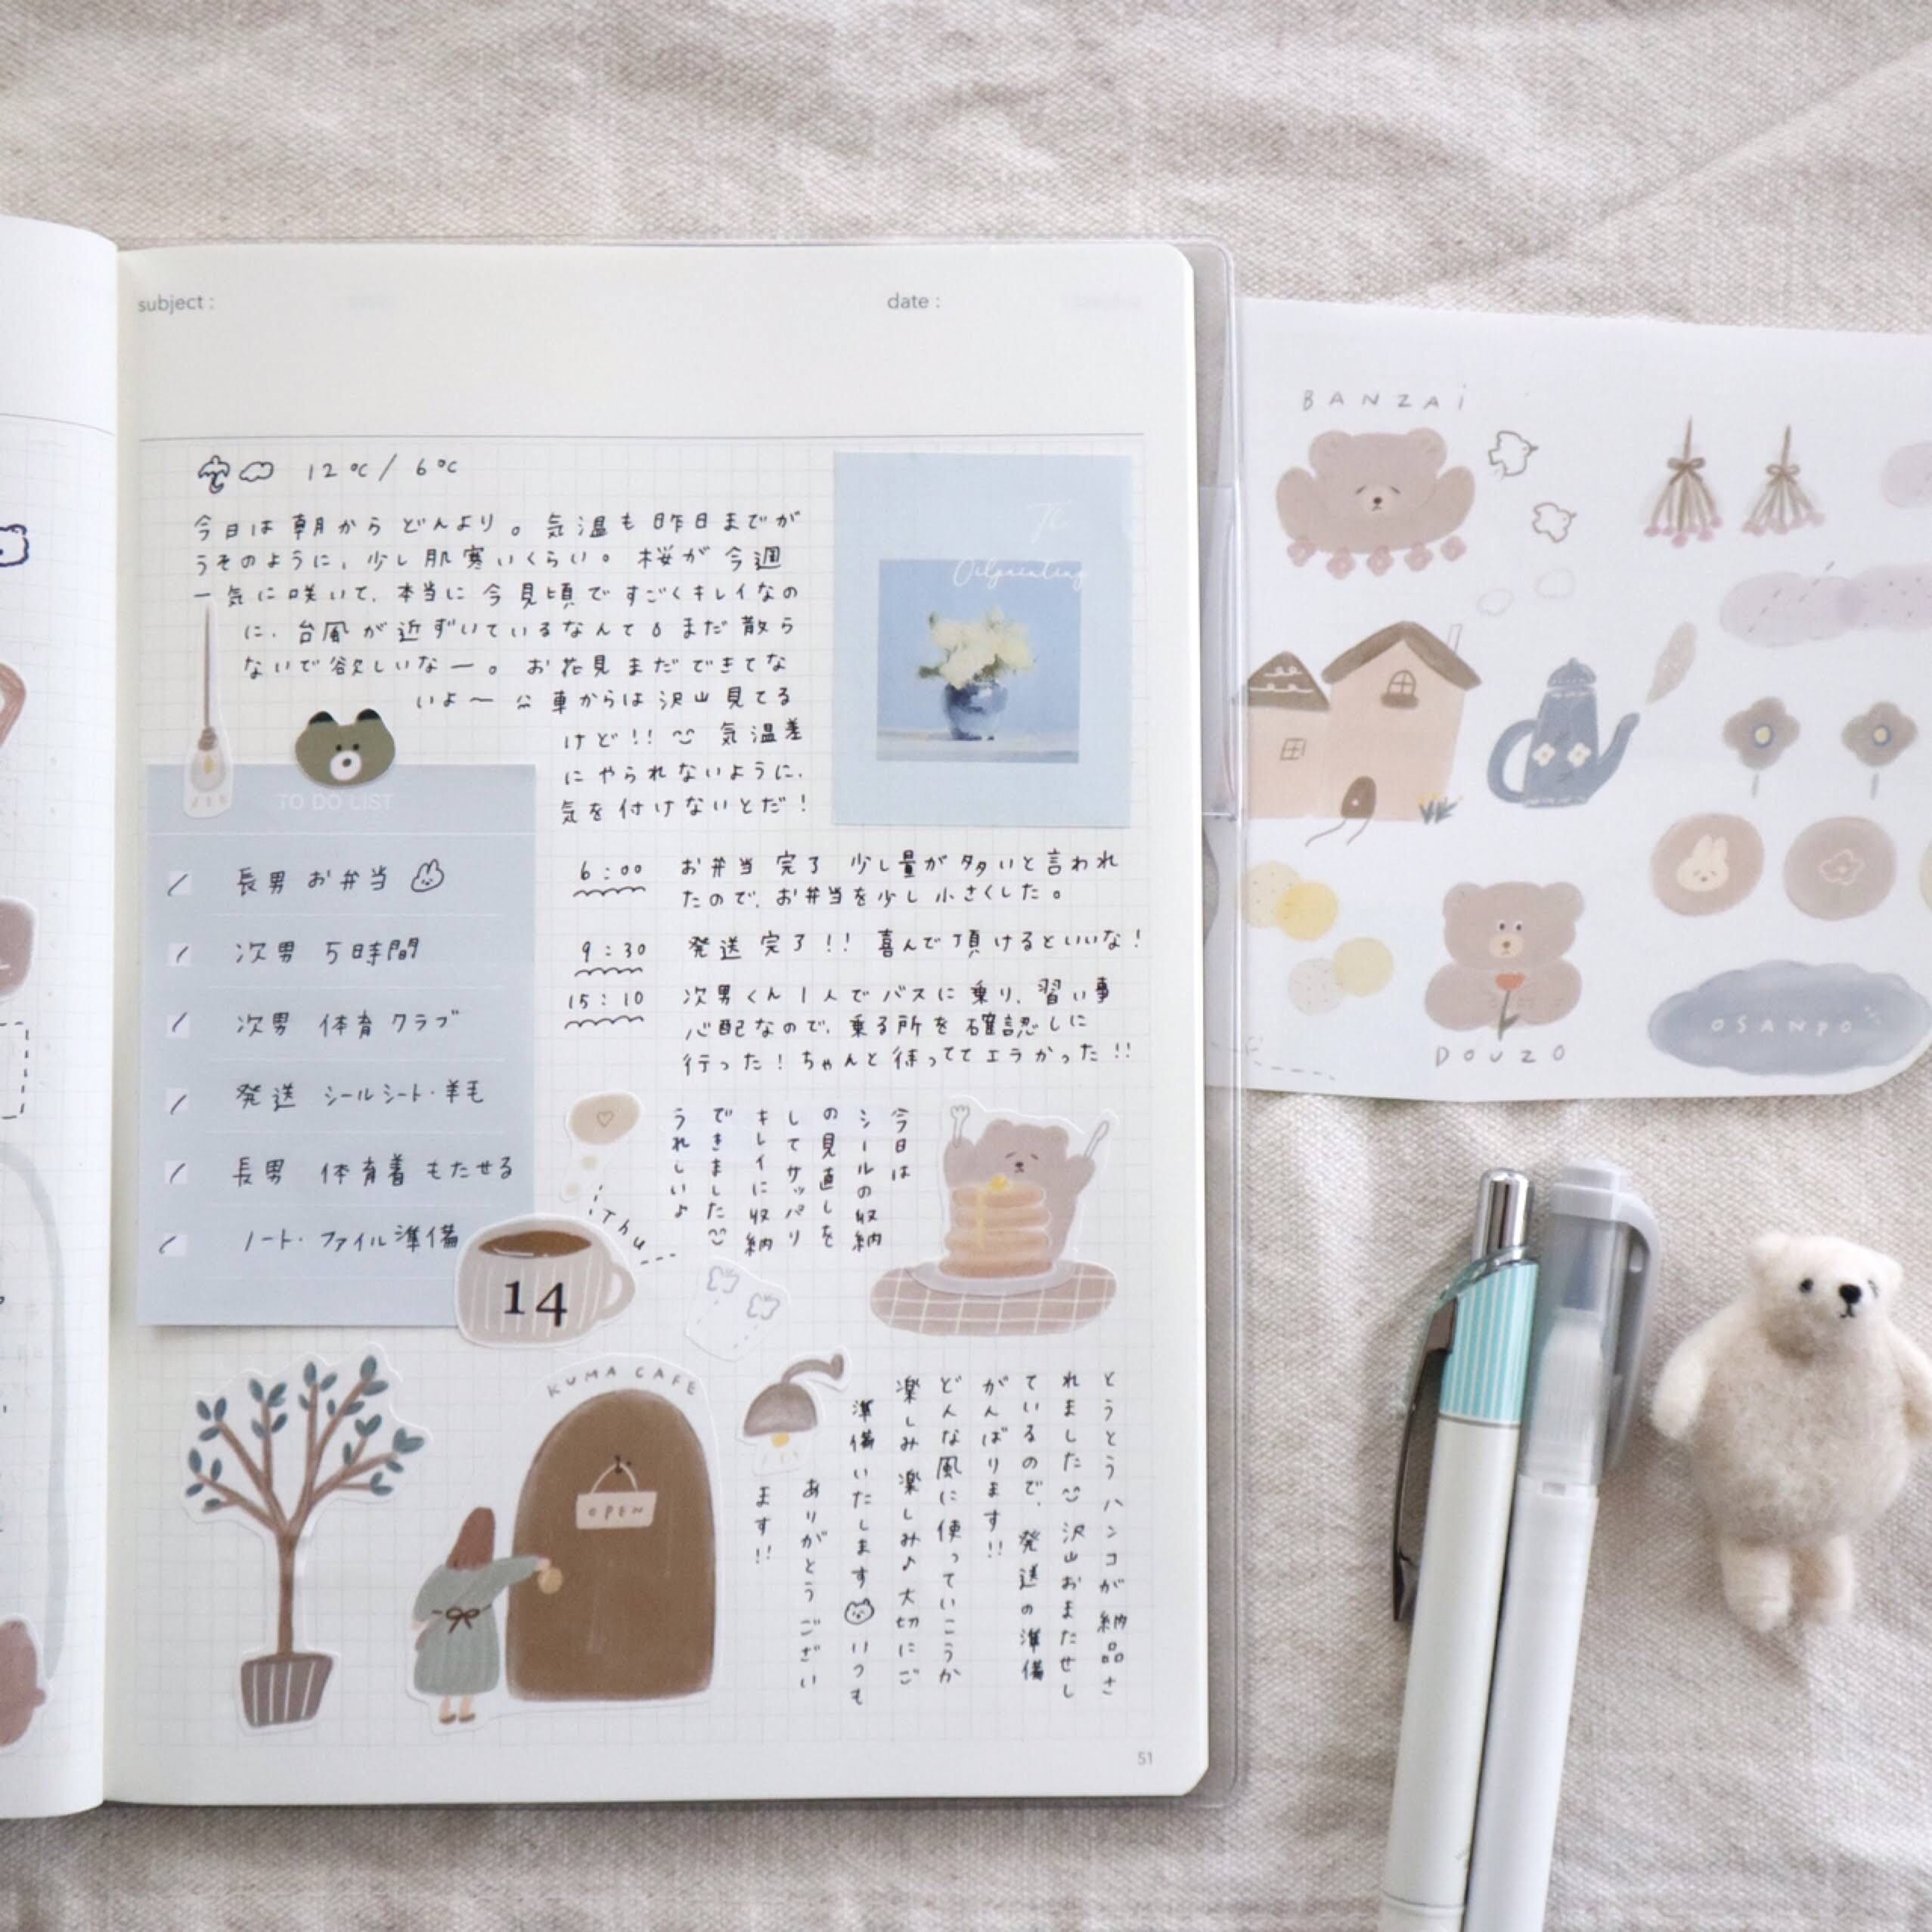 subject :
date :
12℃/ 6℃
今日は朝からどんより。気温も昨日までが
うそのように、少し肌寒いくらい。桜が今週
一気に咲いて、本当に今見頃ですごくキレイなの
に、台風が近ずいているなんて。まだ散ら
ないで欲しいなー。お花見まだできてな
いよ〜 車からは沢山見てる
けど!! 気温差
にやられないように、
気を付けないとだ!
The
Oilpainting
TO DO LIST
長男 お弁当
次男 5時間
次男 体育クラブ
発送 シールシート・羊毛
長男 体育着もたせる
ノート・ファイル準備
6:00 お弁当 完了 少し量が多いと言われ
たので、お弁当を少し小さくした。
9:30 発送 完了!! 喜んで頂けるといいな!
15:10 次男くん1人でバスに乗り、習い事
心配なので、乗る所を確認しに
行った!ちゃんと待っててエラかった!!
今日は
シールの収納
の見直しを
してサッパリ
キレイに収納
できました
うれしいよ
Thu
14
KUMA CAFE
OPEN
とうとうハンコが納品さ
れました 沢山おまたせし
ているので、発送の準備
がんばります!!
どんな風に使っていこうか
楽しみ楽しみ♪大切にご
準備いたします いつも
ありがとうござい
ます!!
51
BANZAi
DOUZO
OSANPO